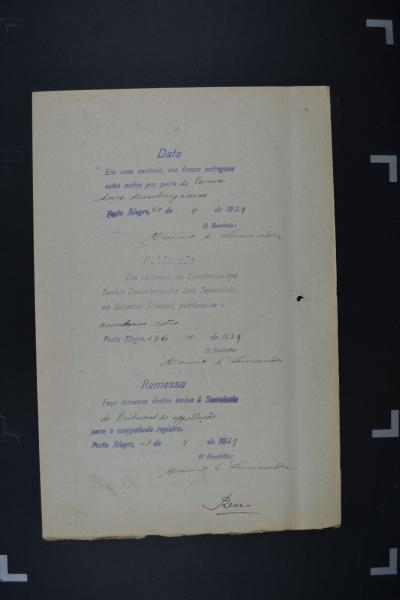 Data
Em meu cartorio, me foram entregues
estes autos por parte do
desembargadores
Porto Alegre, de 9 de 1929
O Escrivão:
Publicação
Em cartorio do Excellentissimo
Senhor Desembargador Juiz Semanario,
no Superior Tribunal, publicou-se o
accordam retro
Porto Alegre, 27 de de 1929
O Escrivão:
Remessa
Faço remessa destes autos á Secretaria
do tribunal de appellação
para o competente registro.
Porto Alegre, 27 de 9 de 1929
O Escrivão: